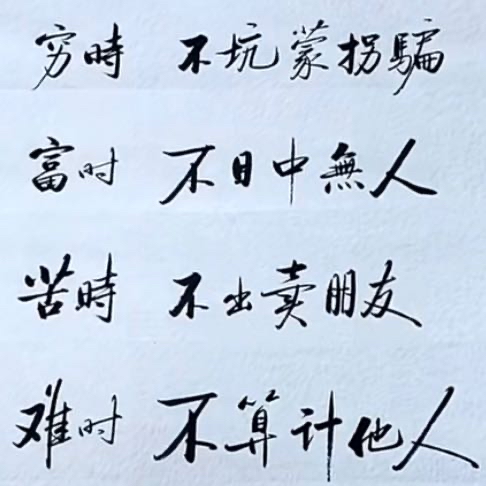 穷時 不坑蒙拐騙
富时 不日中無人
苦時 不出卖朋友
难时 不算计他人